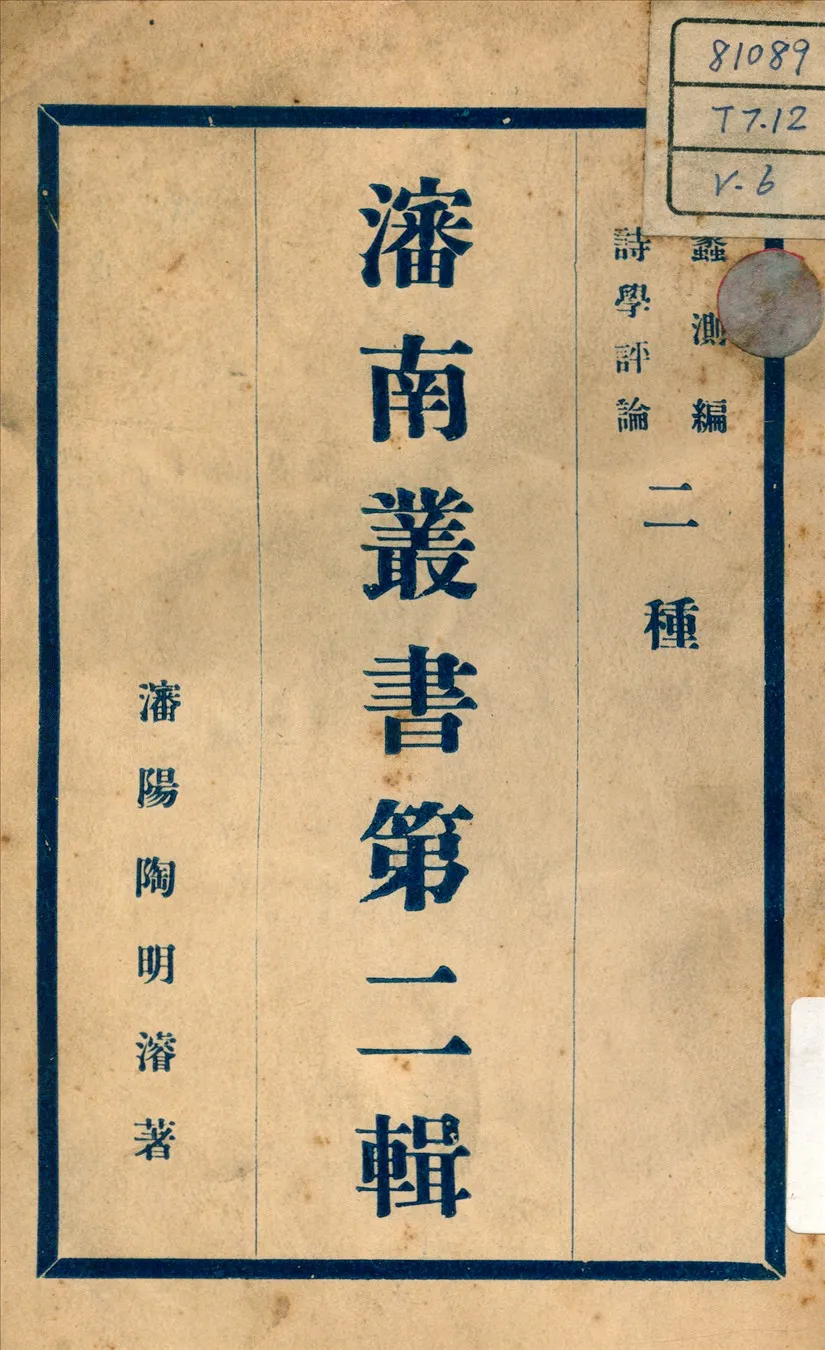 蠡測編
詩學評論
二種
瀋南叢書第二輯
瀋陽陶明濬著
81089
T7.12
V.6